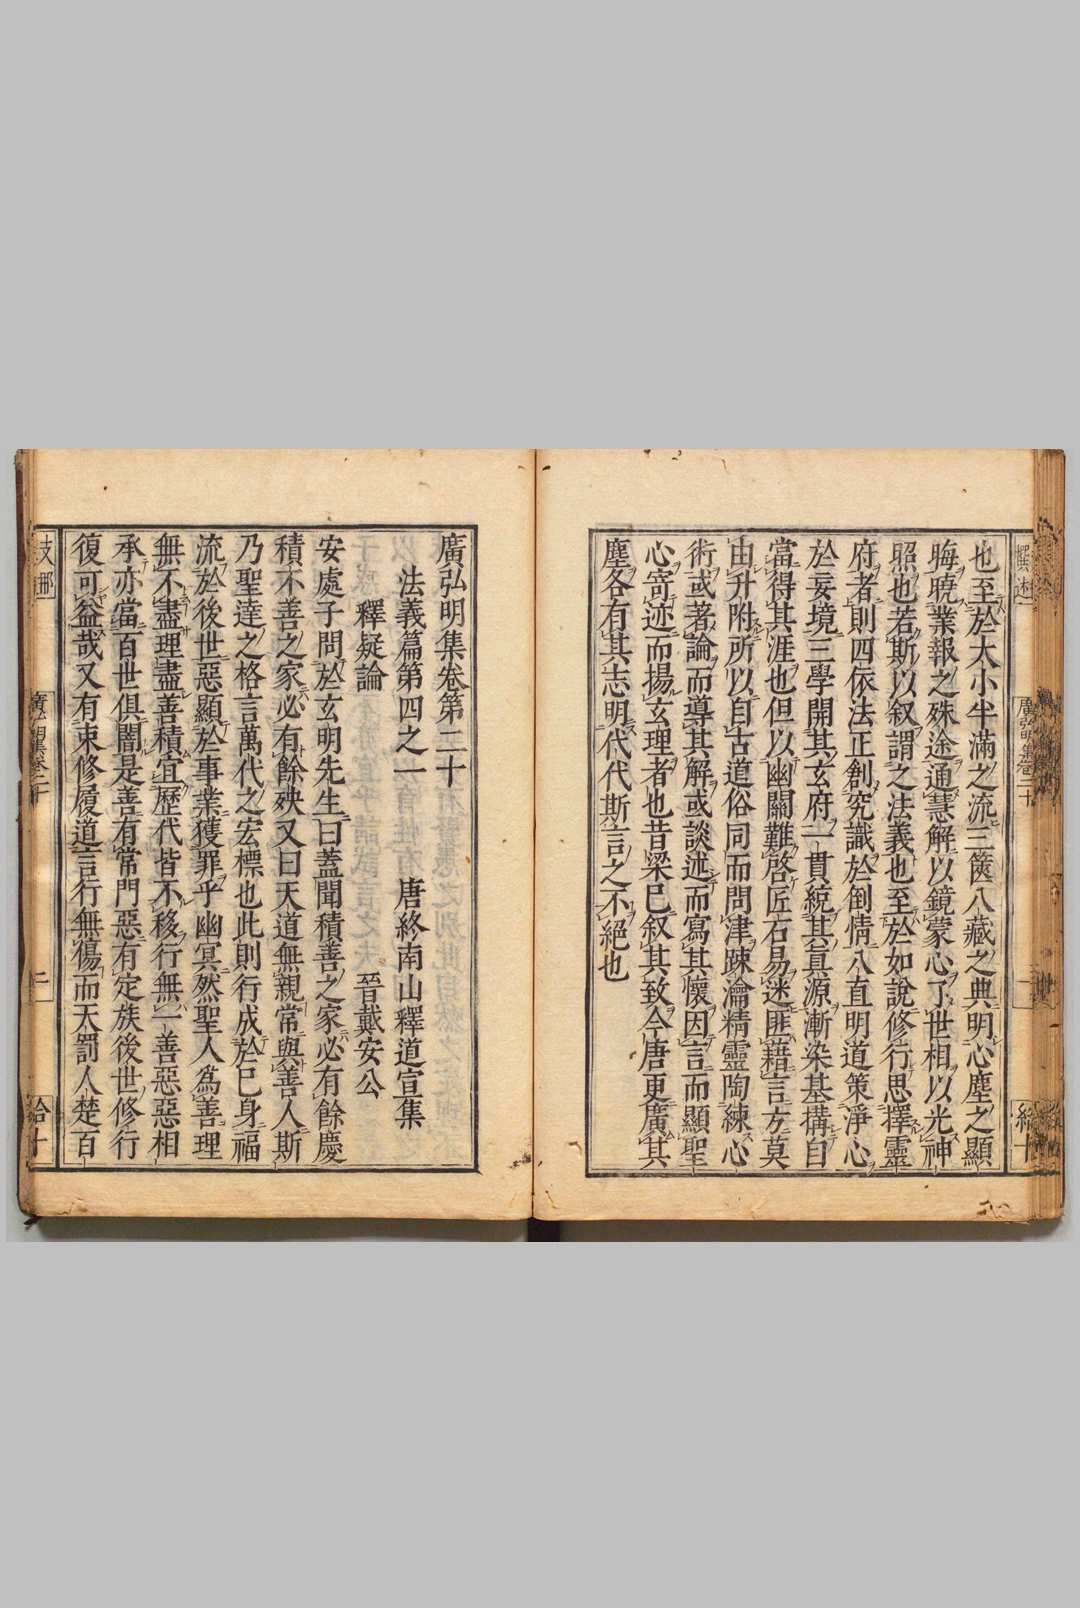 也至於大小半滿之流三篋八藏之典明心塵之顯
晦曉業報之殊途通慧解以鏡蒙心了世相以光神
照也若斯以叙謂之法義也至於如說修行思擇靈
府者則四依法正創究識於倒情八直明道策淨心
於妄境三學開其玄府一貫統其真源漸染基構自
當得其涯也但以幽關難啓匠石易迷匪藉言方莫
由升附所以自古道俗同而問津疎瀹精靈陶練心
術或著論而導其解或談述而寫其懷因言而顯聖
心寄迹而揚玄理者也昔梁已叙其致今唐更廣其
塵各有其志明代代斯言之不絕也
廣弘明集卷第二十
法義篇第四之一 唐終南山釋道宣集
釋疑論 晉戴安公
安處子問於玄明先生曰蓋聞積善之家必有餘慶
積不善之家必有餘殃又曰天道無親常與善人斯
乃聖達之格言萬代之宏標也此則行成於已身福
流於後世惡顯於事業獲罪乎幽冥然聖人爲善理
無不盡理盡善積宜歷代皆不移行無一善惡惡相
承亦當百世俱闇是善有常門惡有定族後世修行
復可益哉又有束修履道言行無傷而天罰人楚百
廣弘明集卷二十
二